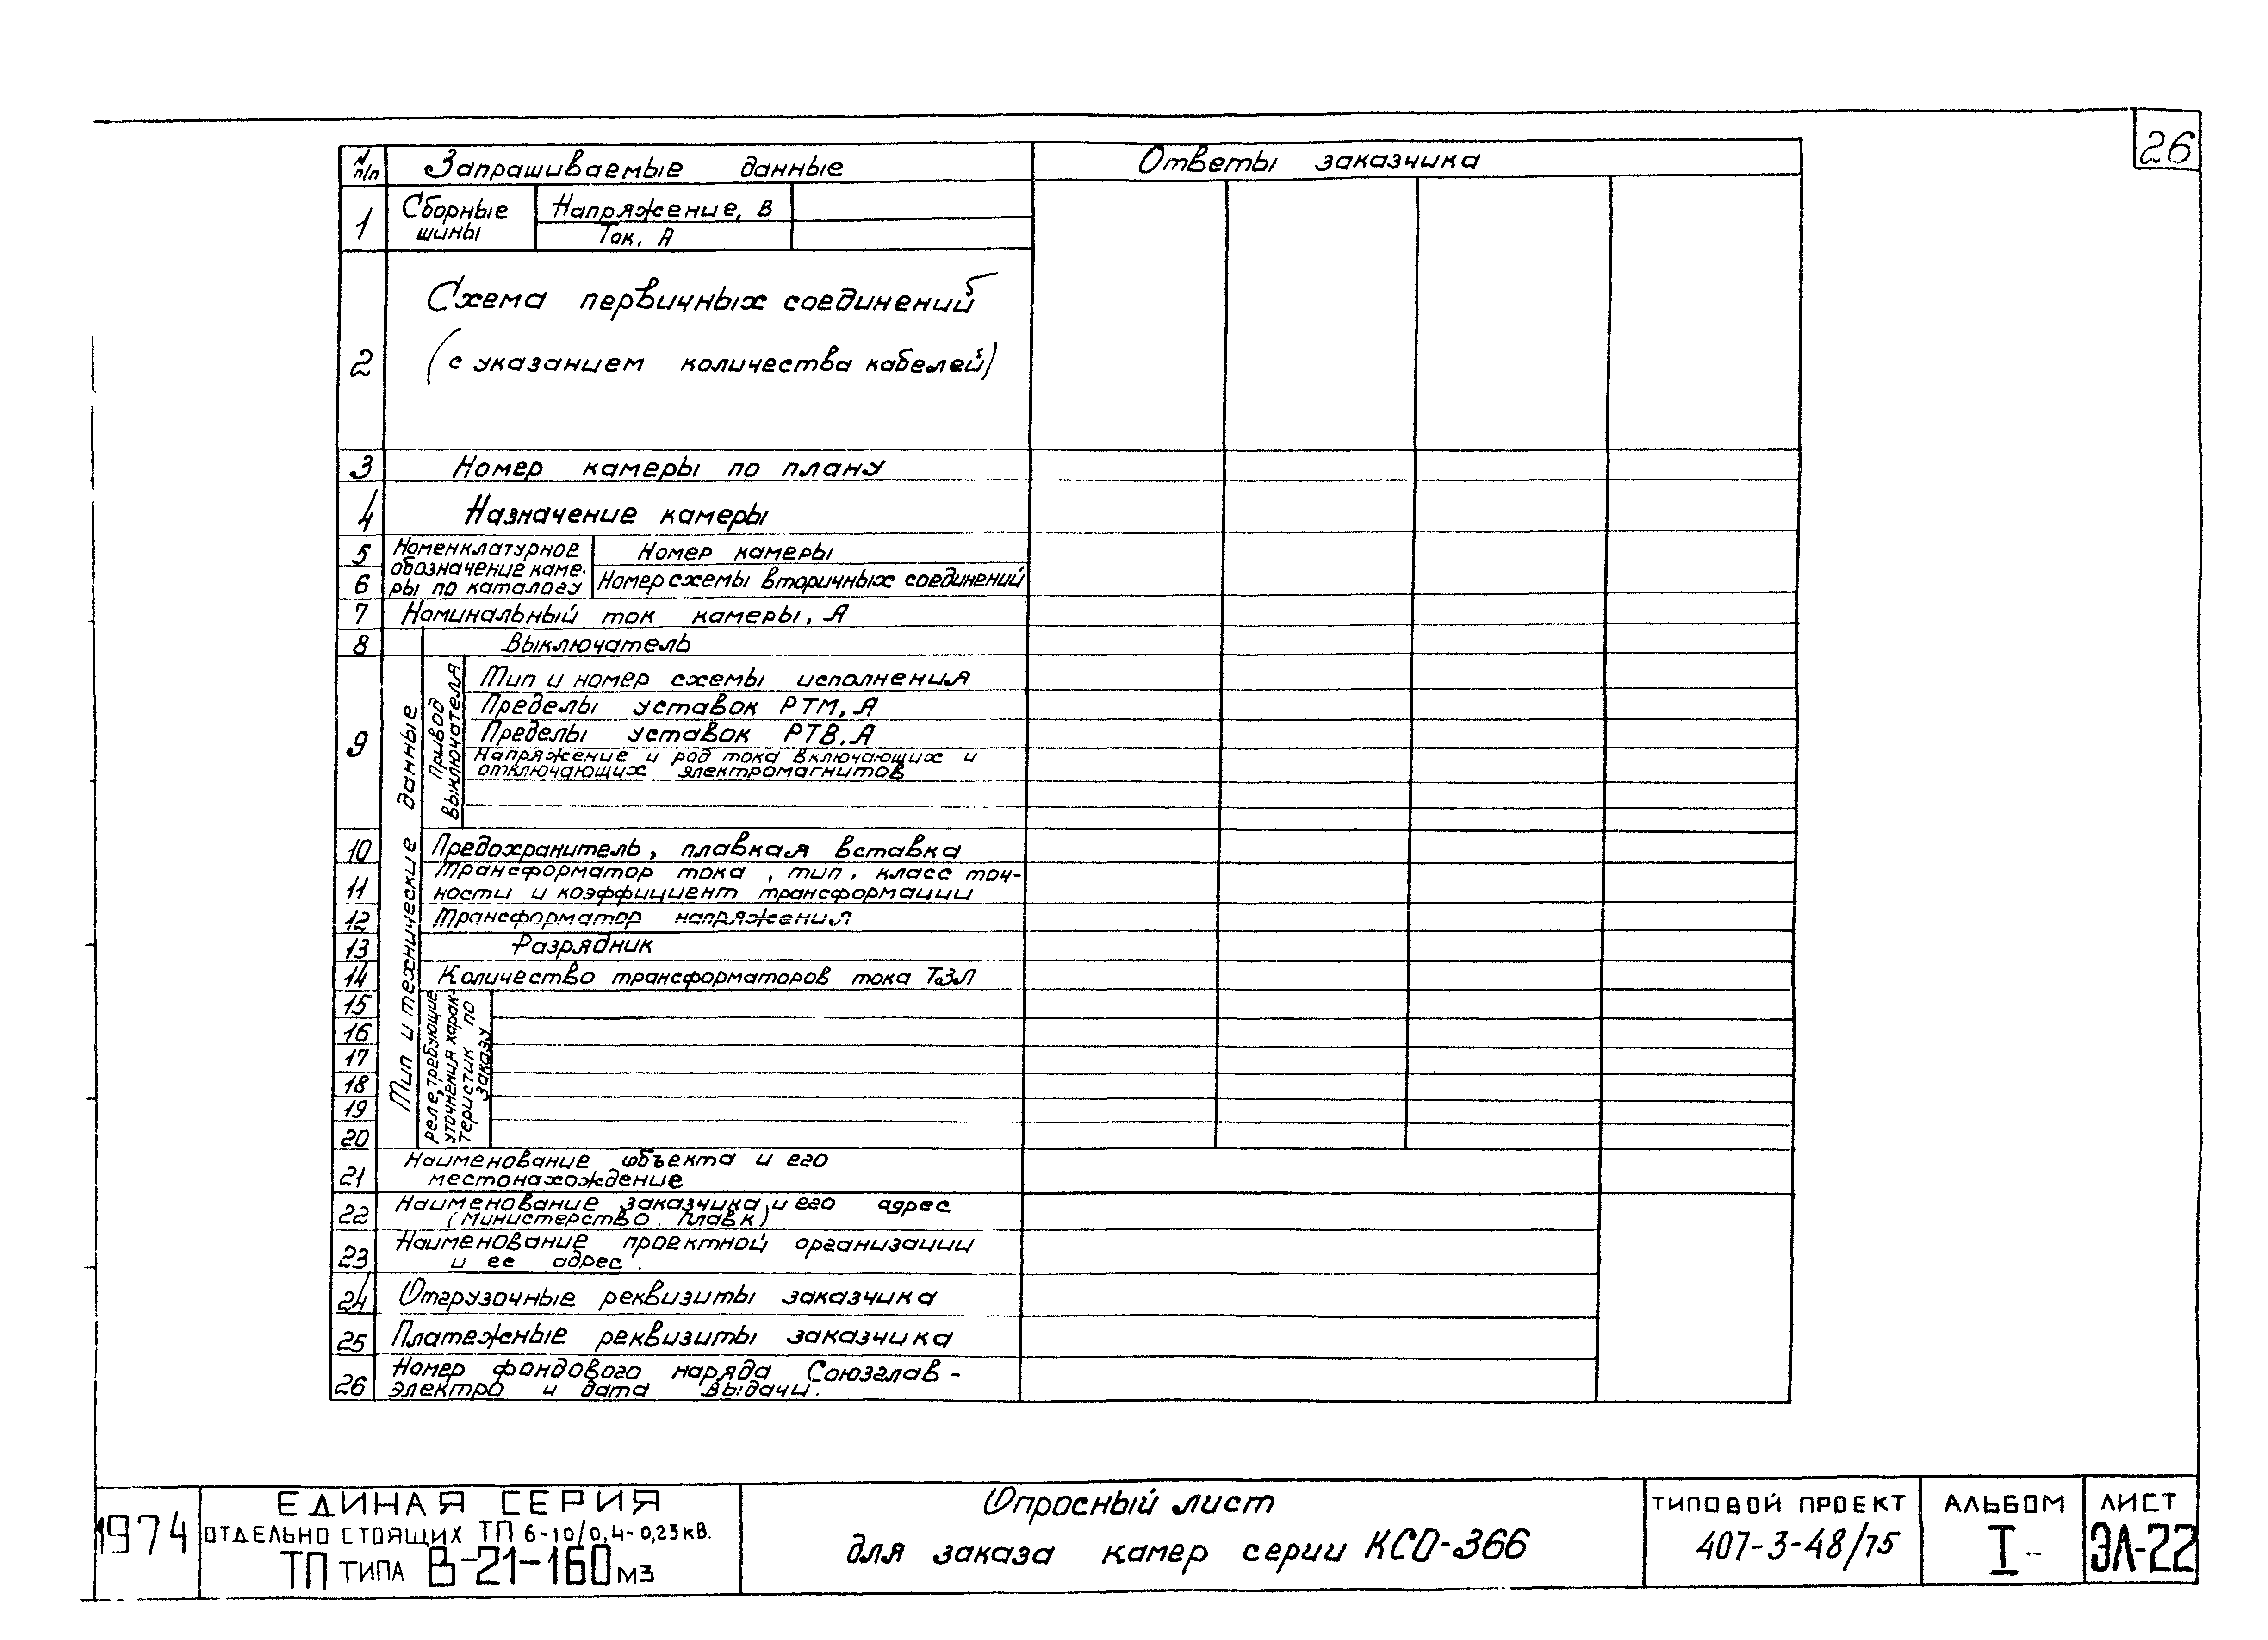 26
N п/п Запрашиваемые данные Ответы заказчика
1 Сборные шины Напряжение, В
Ток, А
2 Схема первичных соединений
(с указанием количества кабелей)
3 Номер камеры по плану
4 Назначение камеры
Номенклатурное обозначение каме-
ры по каталогу
5 Номер камеры
6 Номер схемы вторичных соединений
7 Номинальный ток камеры, А
Тип и технические данные
8 Выключатель
9 Привод выключателя
Тип и номер схемы исполнения
Пределы уставок РТМ, А
Пределы уставок РТВ, А
Напряжение и род тока включающих и
отключающих электромагнитов
10 Предохранитель, плавкая вставка
11 Трансформатор тока, тип, класс точ-
ности и коэффициент трансформации
12 Трансформатор напряжения
13 Разрядник
14 Количество трансформаторов тока ТЗЛ
реле, требующие
уточнения харак-
теристик по
заказу
15
16
17
18
19
20
21 Наименование объекта и его
местонахождение
22 Наименование заказчика и его адрес
(министерство, главк)
23 Наименование проектной организации
и ее адрес.
24 Отгрузочные реквизиты заказчика
25 Платежные реквизиты заказчика
26 Номер фондового наряда Союзглав-
электро и дата выдачи.
1974
ЕДИНАЯ СЕРИЯ
ОТДЕЛЬНО СТОЯЩИХ ТП 6-10/0,4-0,23кв.
ТП ТИПА В-21-160м3
Опросный лист
для заказа камер серии КСО-366
ТИПОВОЙ ПРОЕКТ
407-3-48/75
АЛЬБОМ
I
ЛИСТ
ЭЛ-22